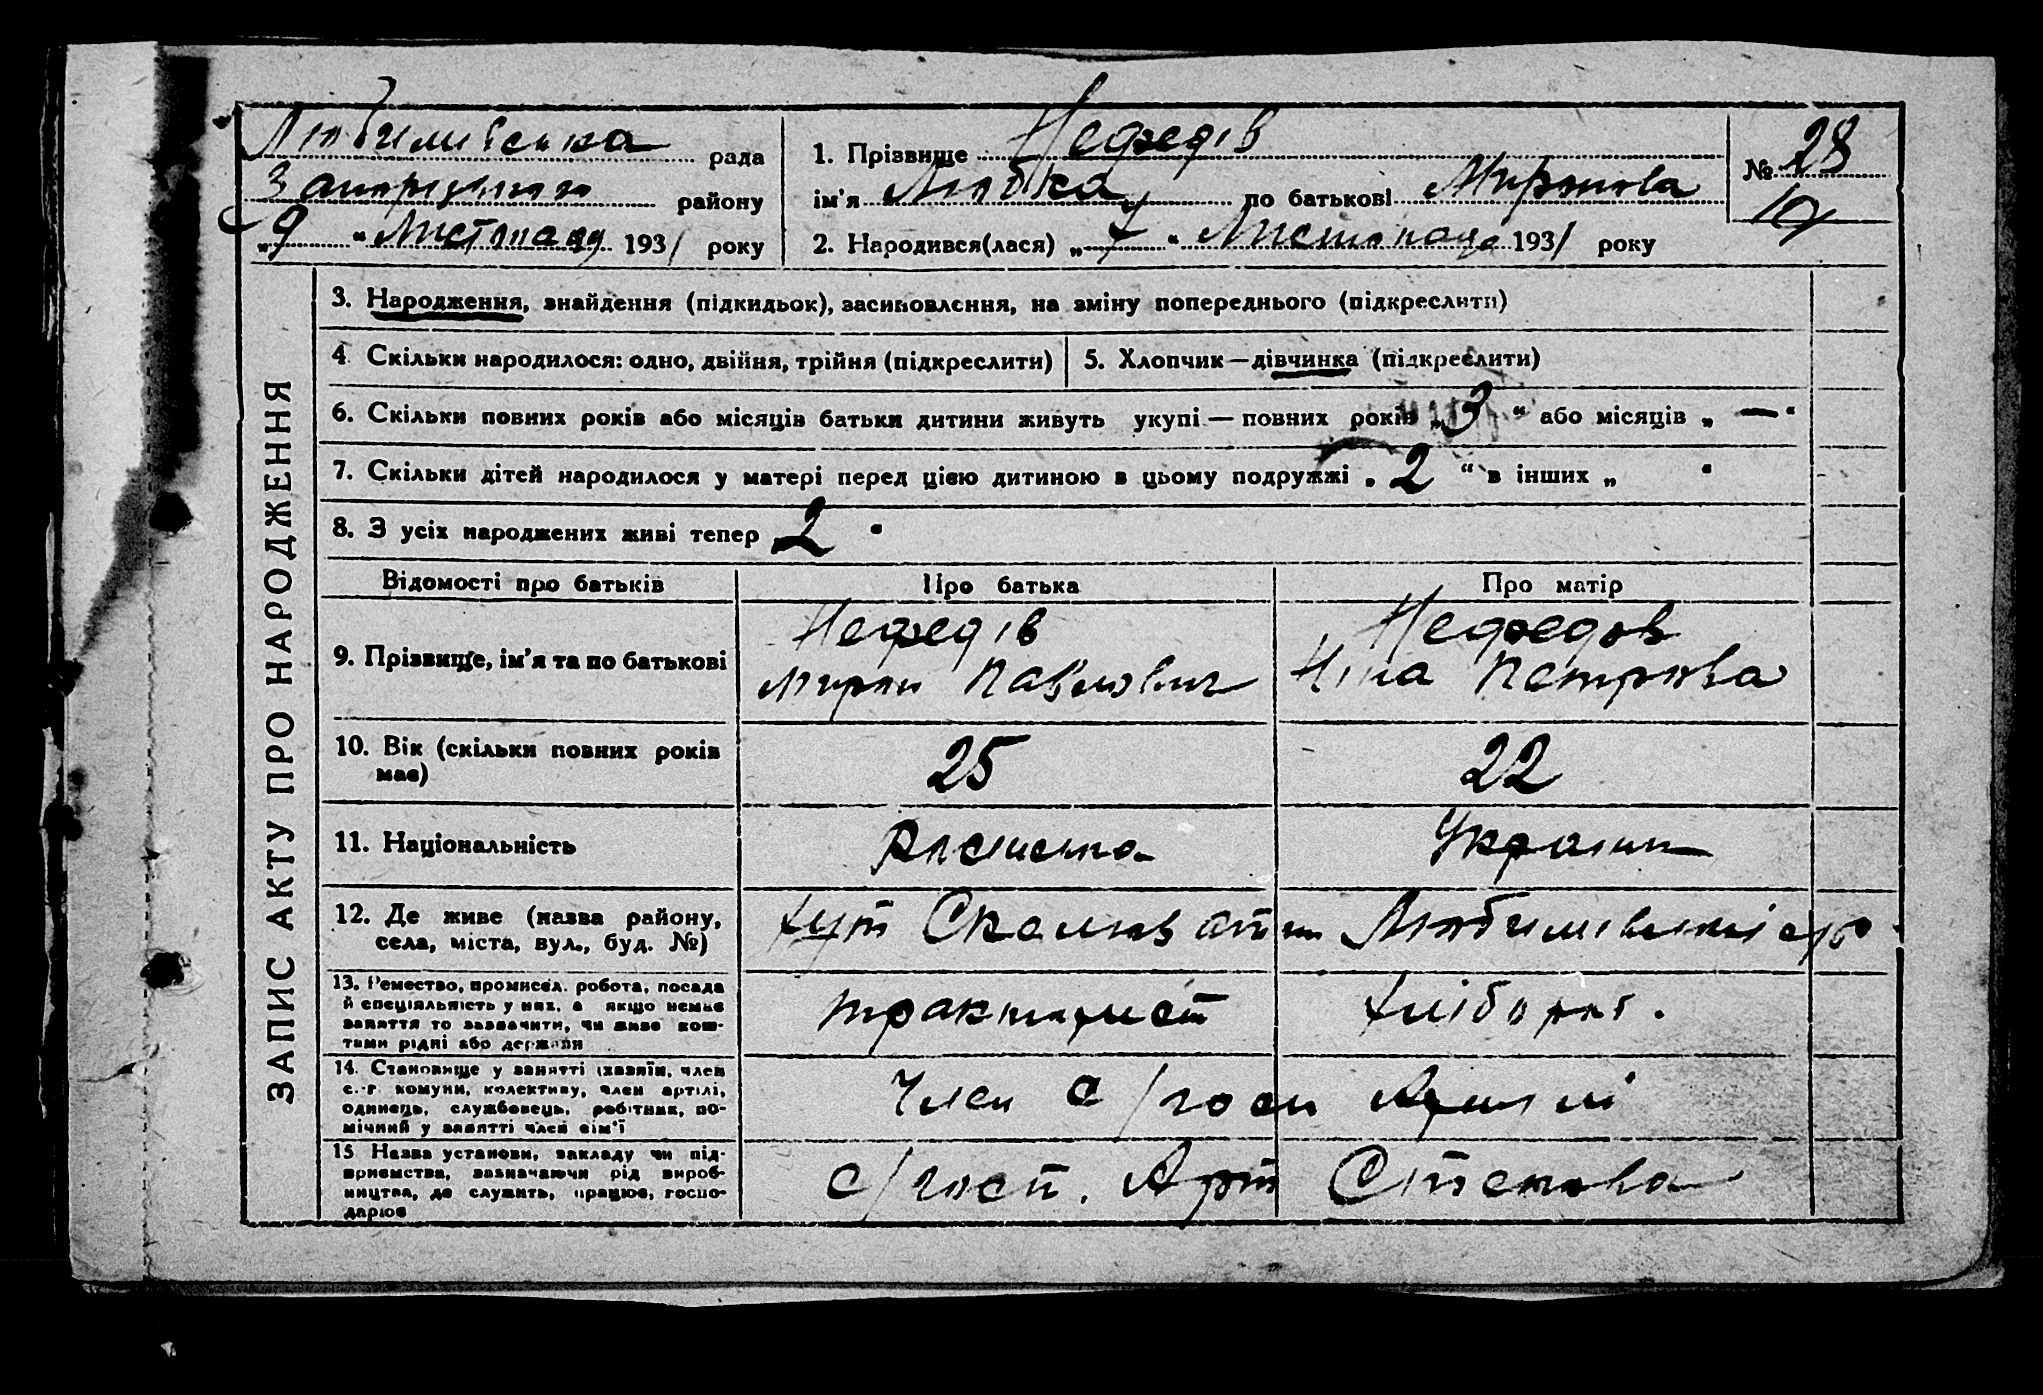 Любимівська рада
Запоріжжя району
„ 9 “ Листопада 1931 року
1. Прізвище Нефедів
ім'я Любка по батькові Миронова
2. Народився(лася) „ 7 “ Листопада 1931 року
№ 28
ЗАПИС АКТУ ПРО НАРОДЖЕННЯ
3. Народження, знайдення (підкидьок), засиновлення, на зміну попереднього (підкреслити)
4. Скільки народилося: одно, двійня, трійня (підкреслити)
5. Хлопчик — дівчинка (підкреслити)
6. Скільки повних років або місяців батьки дитини живуть укупі — повних років „ 3 “ або місяців „ — “
7. Скільки дітей народилося у матері перед цією дитиною в цьому подружжі „ 2 “ в інших „ “
8. З усіх народжених живі тепер 2
Відомості про батьків Про батька Про матір
9. Прізвище, ім'я та по батькові
Нефедів
Мирон Павлович
Нефедов
Ніна Петрова
10. Вік (скільки повних років
має)
25
22
11. Національність
Україн
12. Де живе (назва району,
села, міста, вул., буд. №)
хут
13. Ремество, промисел. робота, посада
й спеціяльність у них, а якщо немає
заняття то зазначити, чи живе кош-
тами рідні або держави
тракторист
хлібороб.
14. Становище у занятті (хазяїн, член
с.-г. комуни, колективу, член артілі,
одинець, службовець, робітник, по-
мічний у занятті член сім'ї
Член с/госп Артілі
15 Назва установи, закладу чи під-
приємства, зазначаючи рід вироб-
ництва, де служить, працює, госпо-
дарює
с/госп. Арт